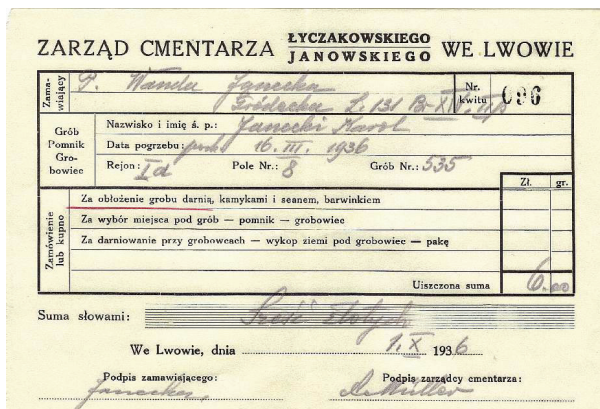 ZARZĄD CMENTARZA ŁYCZAKOWSKIEGO JANOWSKIEGO WE LWOWIE
Zamawiający
P. Wanda Janecka
Gródecka L. 131
Nr. kwitu 096
Grób Pomnik Grobowiec
Nazwisko i imię ś. p.: Janecki Karol
Data pogrzebu: 16. III. 1936
Rejon: Id Pole Nr.: 8 Grób Nr.: 535
Zł. gr.
Zamówienie lub kupno
Za obłożenie grobu darnią, kamykami i seanem, barwinkiem
Za wybór miejsca pod grób — pomnik — grobowiec
Za darniowanie przy grobowcach — wykop ziemi pod grobowiec — pakę
Uiszczona suma 6.00
Suma słowami: Sześć złotych
We Lwowie, dnia 1. X 1936
Podpis zamawiającego: Podpis zarządcy cmentarza:
Janecka, Müller